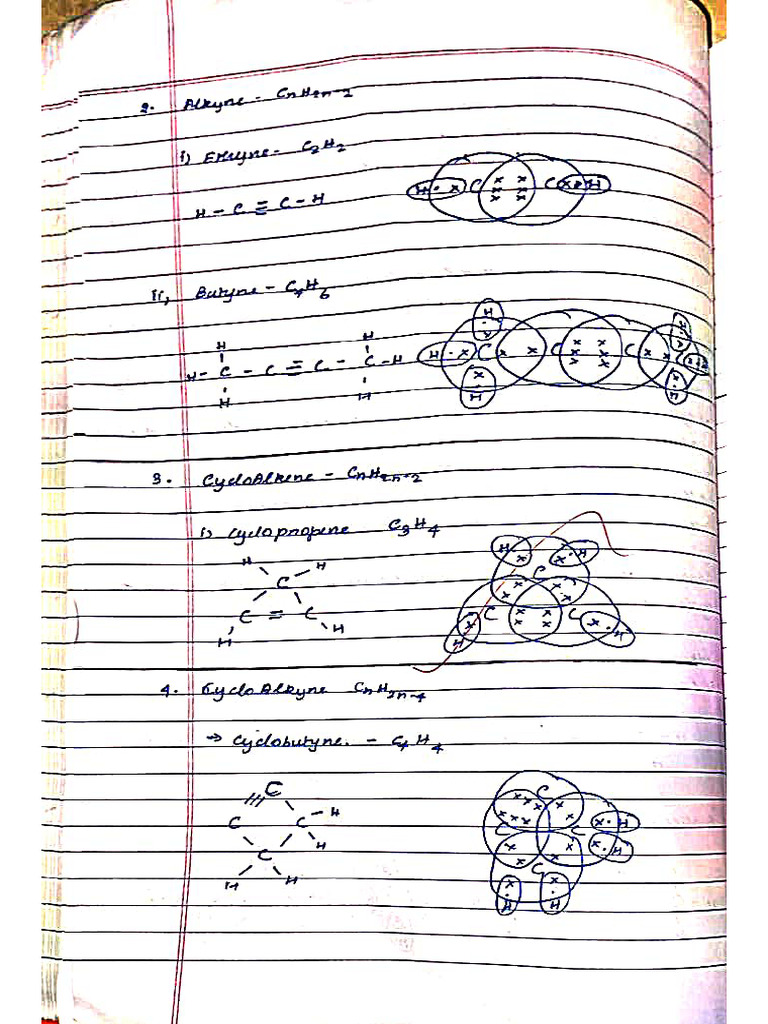 2. Alkyne - CnH2n-2
i) Ethyne - C2H2
H - C ≡ C - H
H · x C x x x x x x C x · H
ii, Butyne - C4H6
H H
H - C - C ≡ C - C - H
H H
3. CycloAlkene - CnH2n-2
i) cyclopropene C3H4
H H
C
C = C
H H
4. CycloAlkyne CnH2n-4
→ cyclobutyne. - C4H4
C
C C - H
C H
H H